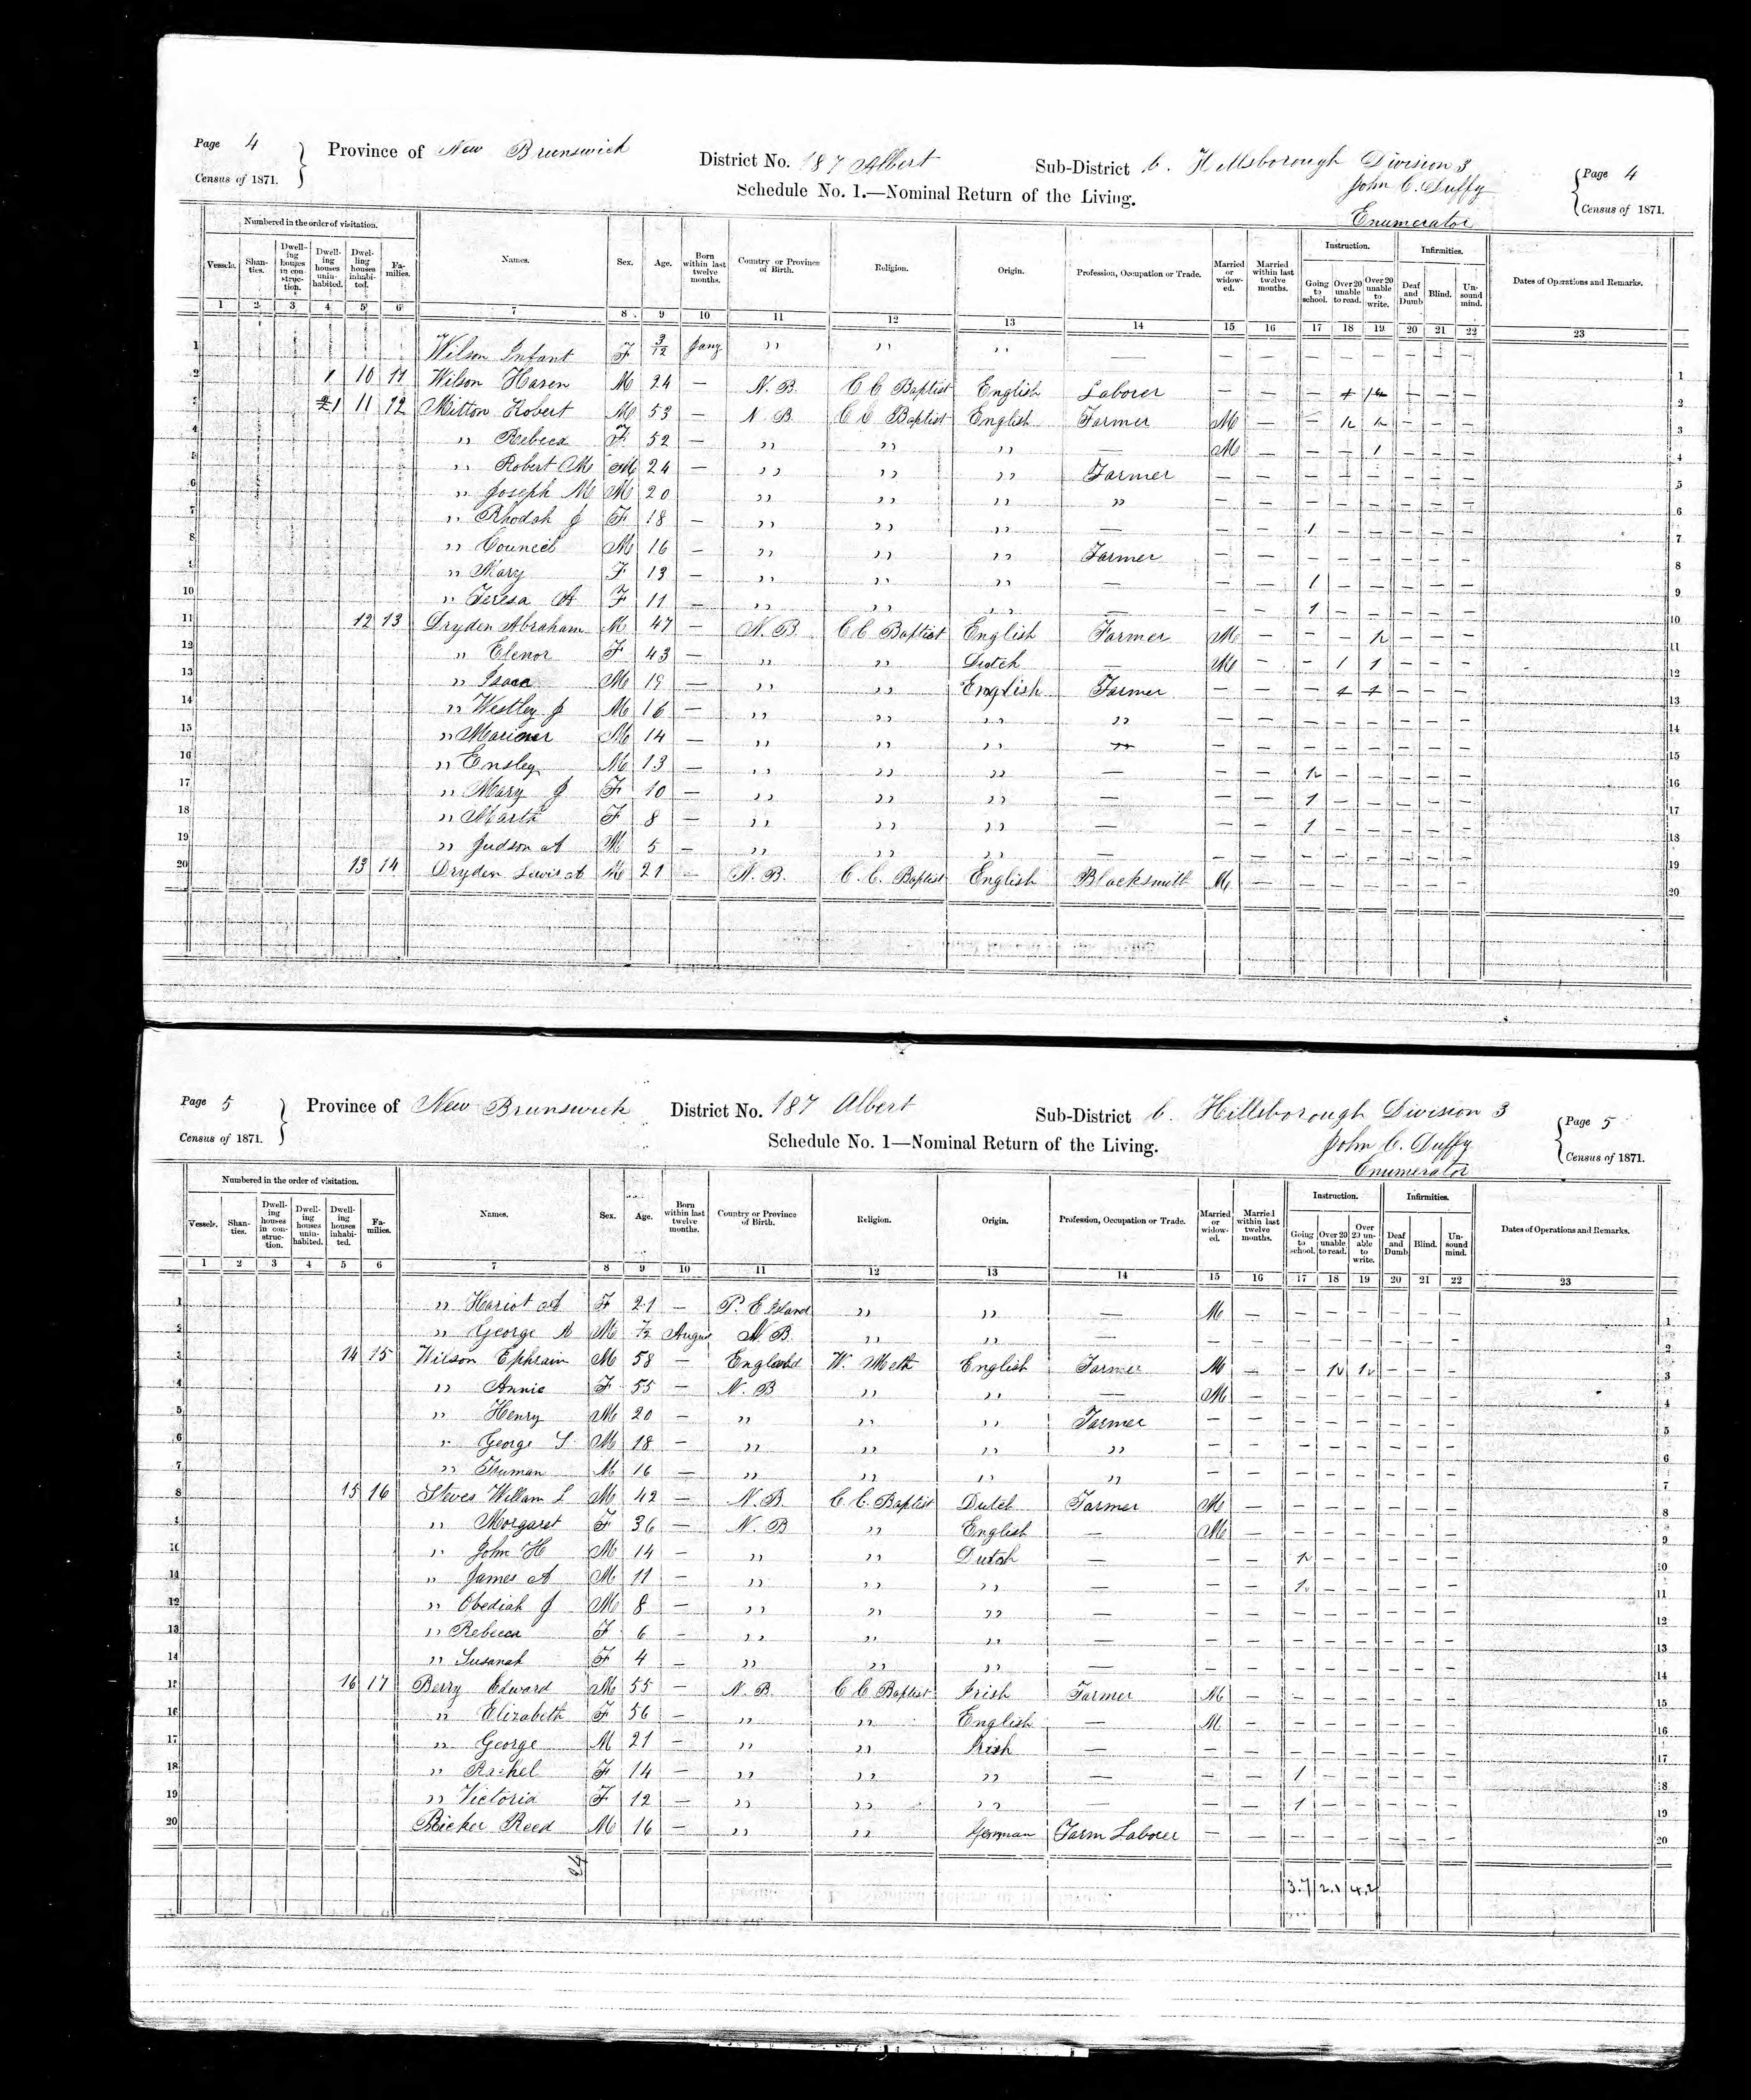 Page 4 Province of New Brunswick District No. 187 Albert Sub-District C. Hillsborough Division 3 Page 4
Census of 1871. Schedule No. 1.—Nominal Return of the Living. John C. Duffy Census of 1871.
Enumerator
Numbered in the order of visitation. Instruction. Infirmities.
Vessels. Shanties. Dwelling houses in construction. Dwelling houses uninhabited. Dwelling houses inhabited. Families. Names. Sex. Age. Born within last twelve months. Country or Province of Birth. Religion. Origin. Profession, Occupation or Trade. Married or widowed. Married within last twelve months. Going to school. Over 20 unable to read. Over 20 unable to write. Deaf and Dumb Blind. Unsound mind. Dates of Operations and Remarks.
1 2 3 4 5 6 7 8 9 10 11 12 13 14 15 16 17 18 19 20 21 22 23
1 Wilson Infant F 3/12 Jany " " " — — — — — — — — — 1
2 1 10 11 Wilson Hasen M 24 — N. B. C C Baptist English Laborer — — — — — — 2
3 1 11 12 Mitton Robert M 53 — N B C C Baptist English Farmer M — — 1 1 — — — 3
4 " Rebeca F 52 — " " " — M — — — 1 — — — 4
5 " Robert M M 24 — " " " Farmer — — — — — — — — 5
6 " Joseph M M 20 " " " " — — — — — — — — 6
7 " Rhodah J F 18 — " " " — — — 1 — — — — — 7
8 " Councel M 16 — " " " Farmer — — — — — — — — 8
9 " Mary F 13 — " " " — — — 1 — — — — — 9
10 " Teresa A F 11 — " " " — — — 1 — — — — — 10
11 12 13 Dryden Abraham M 47 — N. B. C C Baptist English Farmer M — — — 1 — — — 11
12 " Elenor F 43 — " " Dutch — M — — 1 1 — — — 12
13 " Isaac M 19 — " " English Farmer — — — — — — 13
14 " Westley J M 16 — " " " " — — — — — — — — 14
15 " M 14 — " " " — — — — — — — — 15
16 " Ensley M 13 — " " " — — — 1 — — — — — 16
17 " Mary J F 10 — " " " — — — 1 — — — — — 17
18 " Marta F 8 — " " " — — — 1 — — — — — 18
19 " Judson A M 5 — " " " — — — — — — — — — 19
20 13 14 Dryden Lewis A M 21 — N. B. C. C. Baptist English Blacksmith M — — — — — — — 20
Page 5 Province of New Brunswick District No. 187 Albert Sub-District C. Hillsborough Division 3 Page 5
Census of 1871. Schedule No. 1—Nominal Return of the Living. John C. Duffy Census of 1871.
Enumerator
Numbered in the order of visitation. Instruction. Infirmities.
Vessels. Shanties. Dwelling houses in construction. Dwelling houses uninhabited. Dwelling houses inhabited. Families. Names. Sex. Age. Born within last twelve months. Country or Province of Birth. Religion. Origin. Profession, Occupation or Trade. Married or widowed. Married within last twelve months. Going to school. Over 20 unable to read. Over 20 unable to write. Deaf and Dumb Blind. Unsound mind. Dates of Operations and Remarks.
1 2 3 4 5 6 7 8 9 10 11 12 13 14 15 16 17 18 19 20 21 22 23
1 " Hariot A F 21 — P. E Island " " — M — — — — — — — 1
2 " George A M 7/12 August N B " " — — — — — — — — — 2
3 14 15 Wilson Ephraim M 58 — England W. Meth English Farmer M — — 1 1 — — — 3
4 " Annie F 55 — N. B " " — M — — — — — — — 4
5 " Henry M 20 — " " " Farmer — — — — — — — — 5
6 " George S M 18 — " " " " — — — — — — — — 6
7 " Truman M 16 — " " " " — — — — — — — — 7
8 15 16 Steves Willam L M 42 — N. B C C. Baptist Dutch Farmer M — — — — — — — 8
9 " Morgaret F 36 — N. B " English — M — — — — — — — 9
10 " John H M 14 — " " Dutch — — — 1 — — — — — 10
11 " James A M 11 — " " " — — — 1 — — — — — 11
12 " Obediah J M 8 — " " " — — — — — — — — — 12
13 " Rebecca F 6 — " " " — — — — — — — — — 13
14 " Susanah F 4 — " " " — — — — — — — — — 14
15 16 17 Berry Edward M 55 — N. B. C C Baptist Irish Farmer M — — — — — — — 15
16 " Elizabeth F 56 — " " English — M — — — — — — — 16
17 " George M 21 — " " Irish — — — — — — — — — 17
18 " Rachel F 14 — " " " — — — 1 — — — — — 18
19 " Victoria F 12 — " " " — — — 1 — — — — — 19
20 Ricker Reed M 16 — " " German Farm Laborer — — — — — — — — 20
3.7 2.1 4.2